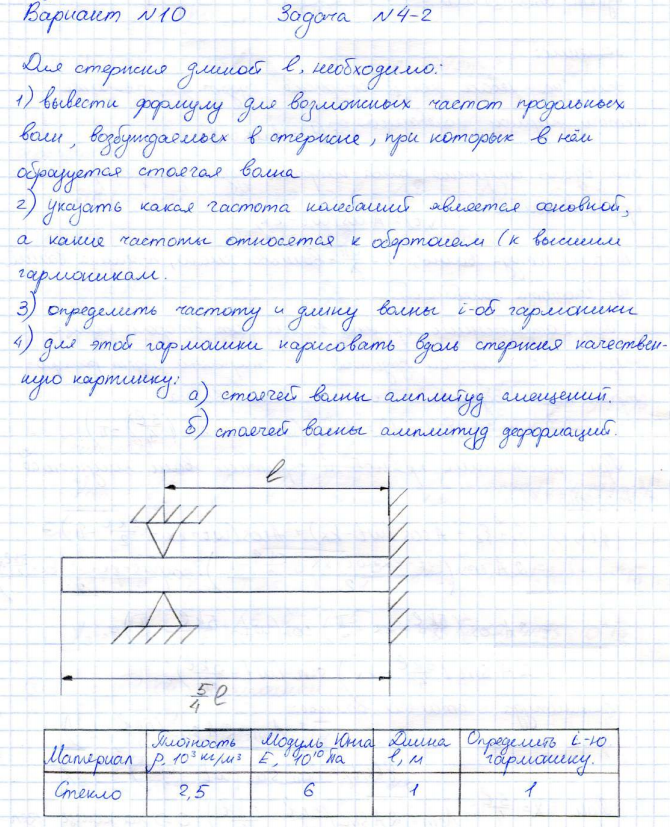 Вариант №10 Задача №4-2
Для стержня длиной l, необходимо:
1) вывести формулу для возможных частот продольных
волн, возбуждаемых в стержне, при которых в нём
образуется стоячая волна
2) указать какая частота колебаний является основной,
а какие частоты относятся к обертонам (к высшим
гармоникам.
3) определить частоту и длину волны i-об гармоники
4) для этоб гармошки нарисовать вдоль стержня качествен-
ную картинку:
а) стоячей волны амплитуд смещений.
б) стоячей волны амплитуд деформаций.
l
5/4 l
Материал Плотность ρ, 10³ кг/м³ Модуль Юнга E, 10¹⁰ Па Длина l, м Определить i-ю гармонику.
Стекло 2,5 6 1 1